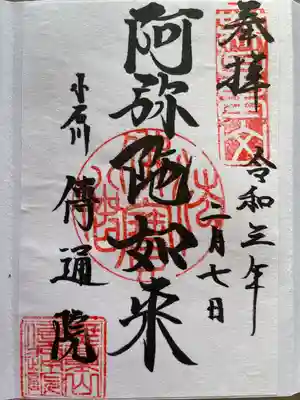 奉拝
令和三年
二月七日
阿弥陀如来
小石川
傳通院